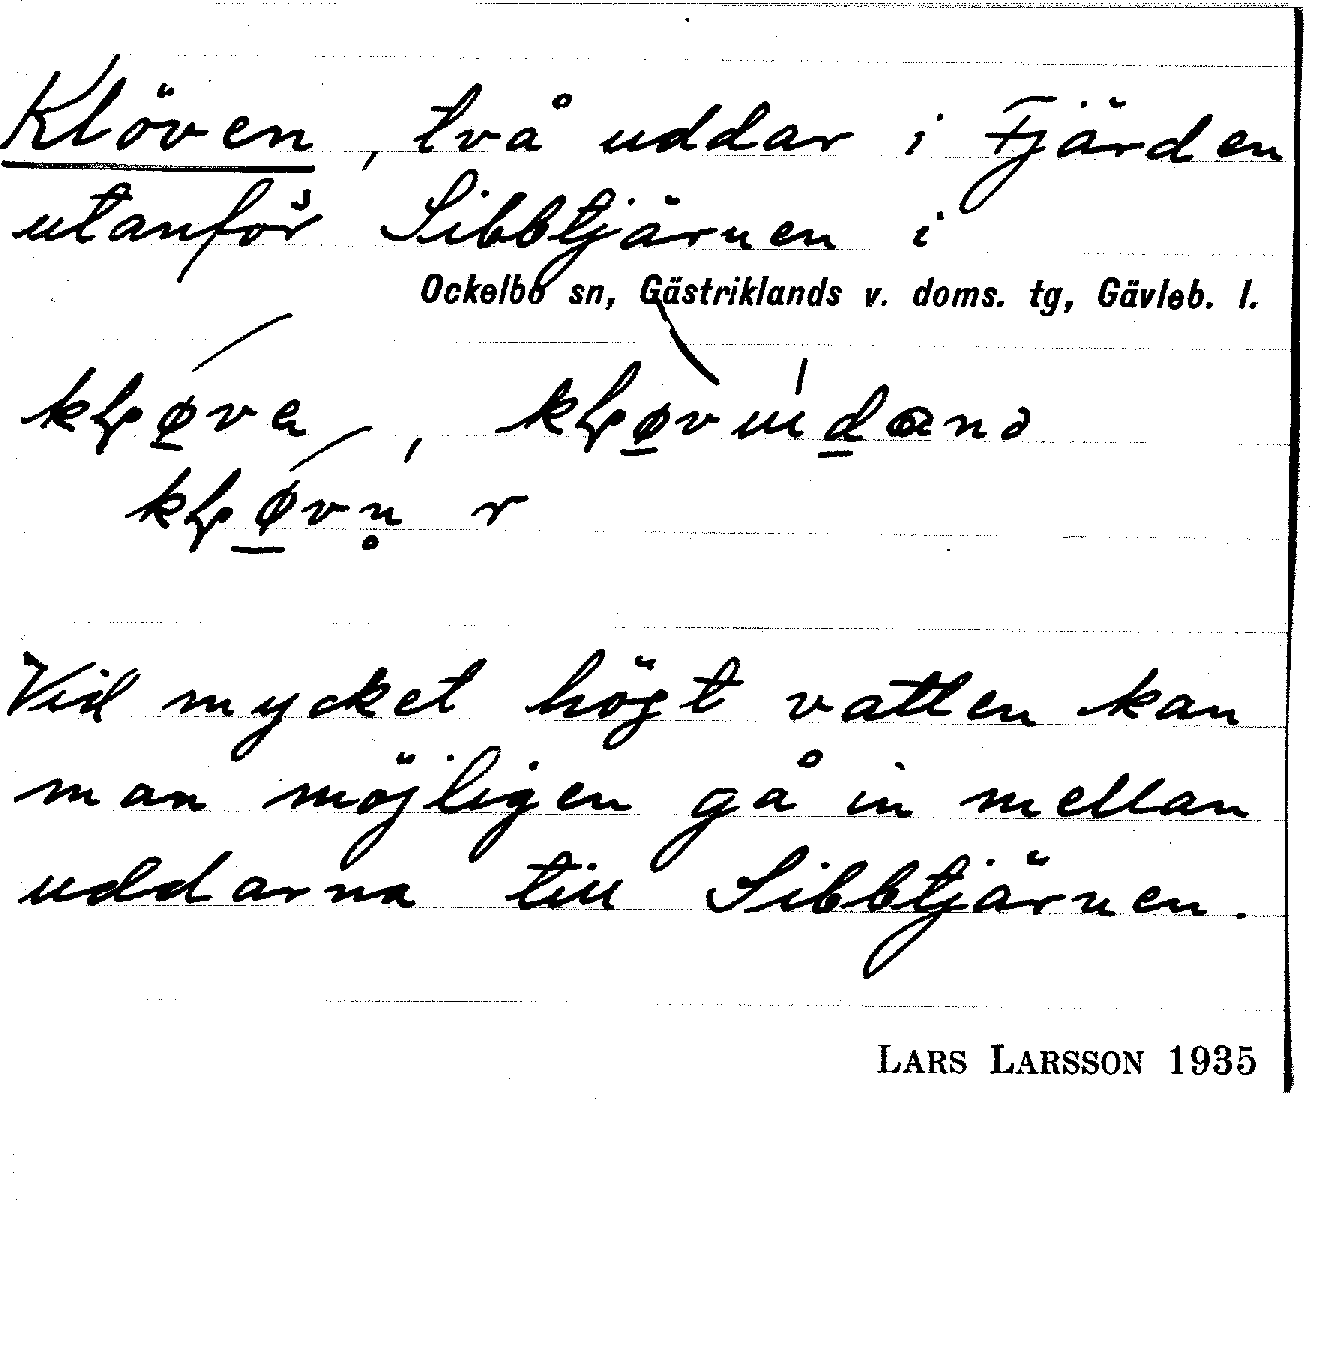 Klöven, två uddar i Fjärden
utanför Sibbtjärnen i
Ockelbo sn, Gästriklands v. doms. tg, Gävleb. l.
Vid mycket högt vatten kan
man möjligen gå in mellan
uddarna till Sibbtjärnen.
LARS LARSSON 1935